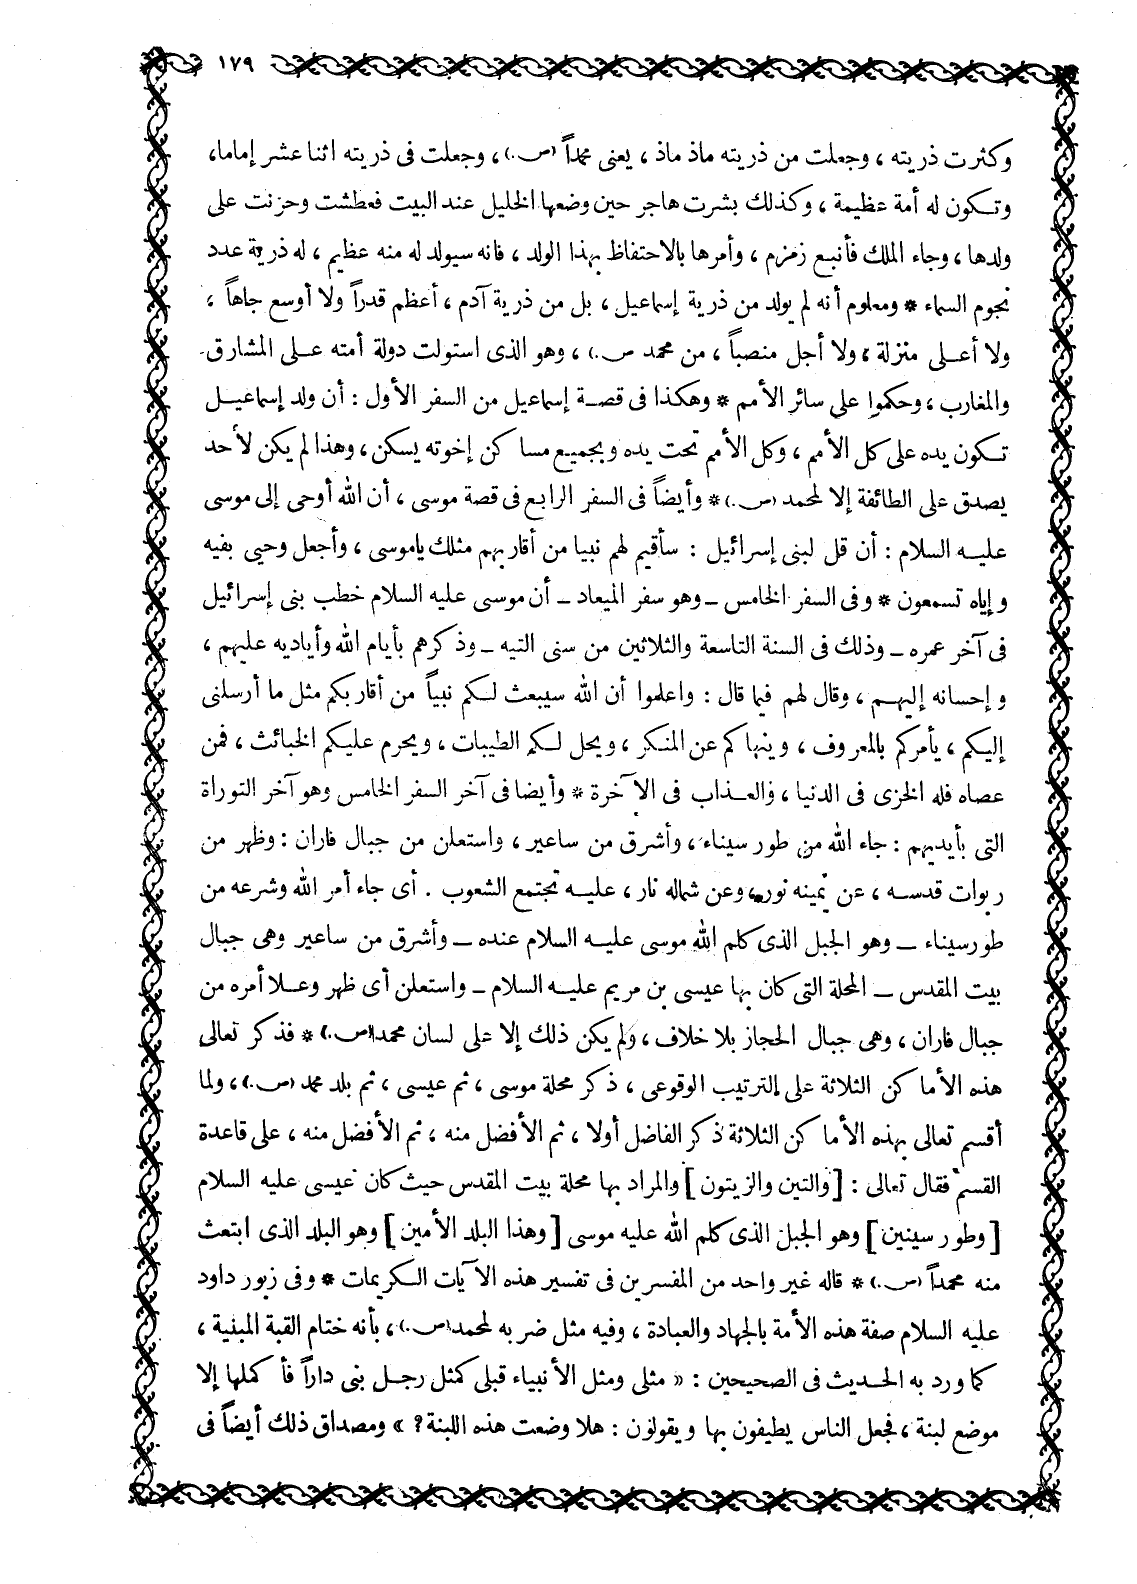 ١٧٩
وكثرت ذريته ، وجعلت من ذريته ماذ ماذ ، يعنى محمداً (ص.) ، وجعلت فى ذريته اثنا عشر إماما،
وتكون له أمة عظيمة ، وكذلك بشرت هاجر حين وضعها الخليل عند البيت فعطشت وحزنت على
ولدها ، وجاء الملك فأنبع زمزم ، وأمرها بالاحتفاظ بهذا الولد ، فانه سيولد له منه عظيم ، له ذرية عدد
نجوم السماء * ومعلوم أنه لم يولد من ذرية إسماعيل ، بل من ذرية آدم ، أعظم قدراً ولا أوسع جاهاً ،
ولا أعلى منزلة ، ولا أجل منصباً ، من محمد ص.) ، وهو الذى استولت دولة أمته على المشارق
والمغارب ، وحكموا على سائر الأمم * وهكذا فى قصة إسماعيل من السفر الأول : أن ولد إسماعيل
تكون يده على كل الأمم ، وكل الأمم تحت يده وبجميع مساكن إخوته يسكن ، وهذا لم يكن لأحد
يصدق على الطائفة إلا لمحمد (ص.) * وأيضاً فى السفر الرابع فى قصة موسى ، أن الله أوحى إلى موسى
عليه السلام : أن قل لبنى إسرائيل : سأقيم لهم نبيا من أقاربهم مثلك ياموسى ، وأجعل وحيي بفيه
وإياه تسمعون * وفى السفر الخامس – وهو سفر الميعاد – أن موسى عليه السلام خطب بنى إسرائيل
فى آخر عمره – وذلك فى السنة التاسعة والثلاثين من سنى التيه – وذكرهم بأيام الله وأياديه عليهم ،
وإحسانه إليهم ، وقال لهم فيما قال : واعلموا أن الله سيبعث لكم نبياً من أقاربكم مثل ما أرسلنى
إليكم ، يأمركم بالمعروف ، وينهاكم عن المنكر ، ويحل لكم الطيبات ، ويحرم عليكم الخبائث ، فمن
عصاه فله الخزى فى الدنيا ، والعذاب فى الآخرة * وأيضا فى آخر السفر الخامس وهو آخر التوراة
التى بأيديهم : جاء الله من طور سيناء ، وأشرق من ساعير ، واستعلن من جبال فاران : وظهر من
ربوات قدسه ، عن يمينه نور ، وعن شماله نار ، عليه تجتمع الشعوب . أى جاء أمر الله وشرعه من
طورسيناء – وهو الجبل الذى كلم الله موسى عليه السلام عنده – وأشرق من ساعير وهى جبال
بيت المقدس – المحلة التى كان بها عيسى بن مريم عليه السلام – واستعلن أى ظهر وعلا أمره من
جبال فاران ، وهى جبال الحجاز بلا خلاف ، ولم يكن ذلك إلا على لسان محمد (ص.) * فذكر تعالى
هذه الأماكن الثلاثة على الترتيب الوقوعى ، ذكر محلة موسى ، ثم عيسى ، ثم بلد محمد (ص.) ، ولما
أقسم تعالى بهذه الأماكن الثلاثة ذكر الفاضل أولا ، ثم الأفضل منه ، ثم الأفضل منه ، على قاعدة
القسم فقال تعالى : [والتين والزيتون] والمراد بها محلة بيت المقدس حيث كان عيسى عليه السلام
[وطور سينين] وهو الجبل الذى كلم الله عليه موسى [وهذا البلد الأمين] وهو البلد الذى ابتعث
منه محمداً (ص.) * قاله غير واحد من المفسرين فى تفسير هذه الآيات الكريمات * وفى زبور داود
عليه السلام صفة هذه الأمة بالجهاد والعبادة ، وفيه مثل ضربه لمحمد (ص.) ، بأنه ختام القبة المبنية ،
كما ورد به الحديث فى الصحيحين : « مثلى ومثل الأنبياء قبلى كمثل رجل بنى داراً فأكملها إلا
موضع لبنة ، فجعل الناس يطيفون بها ويقولون : هلا وضعت هذه اللبنة؟ » ومصداق ذلك أيضاً فى